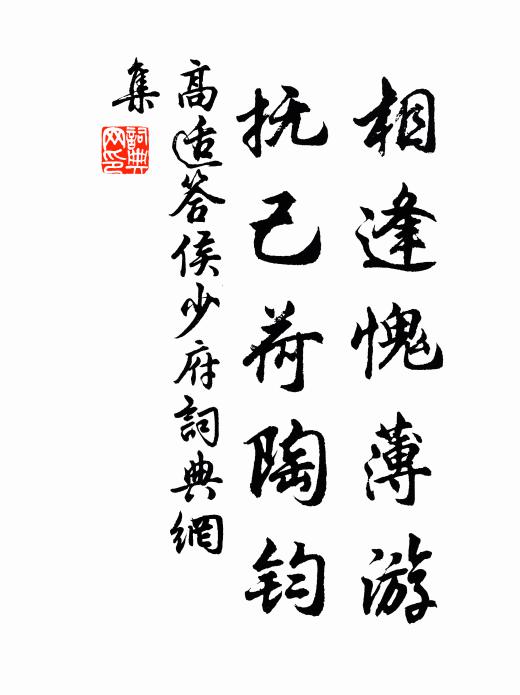 相逢愧薄游
抚己荷陶钧
高适答侯少府詞典網
集
詞典网印